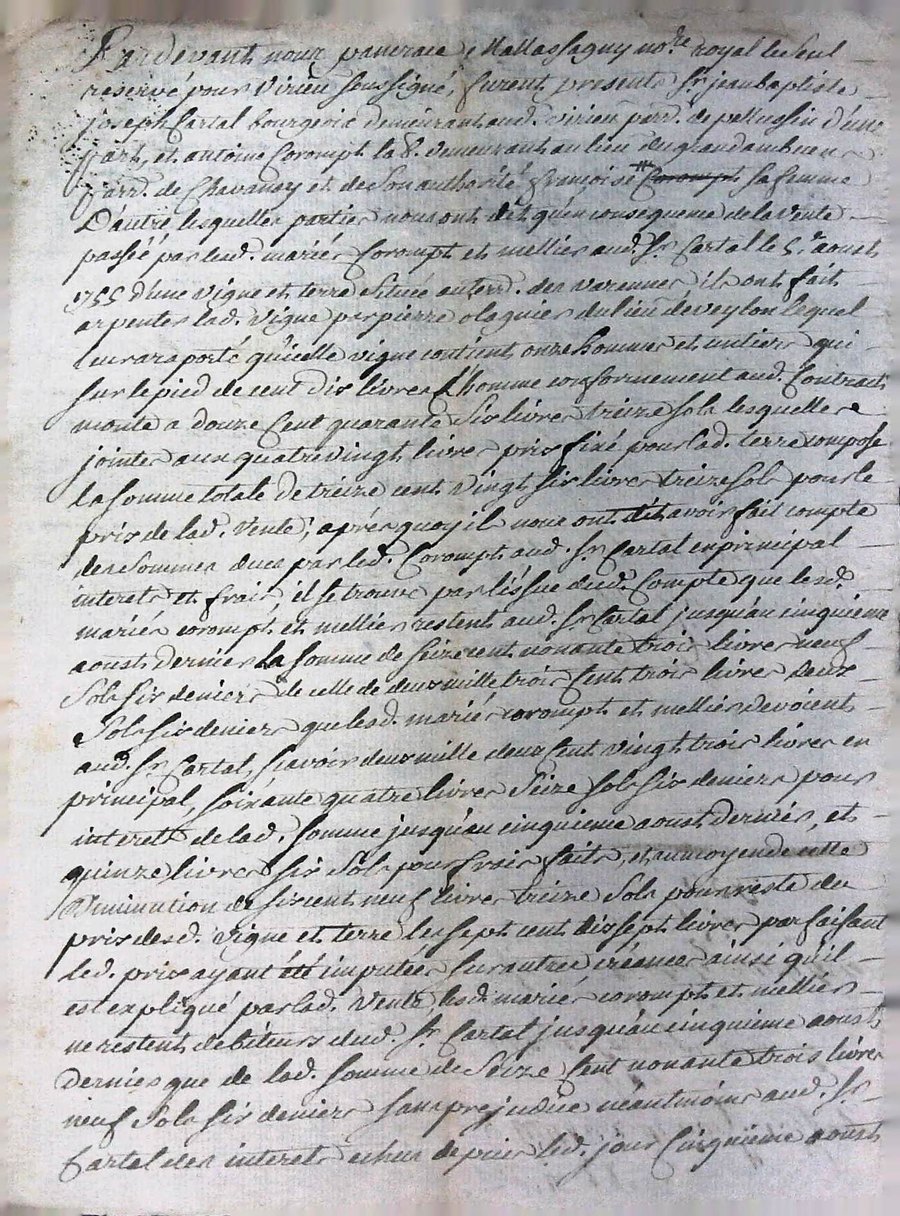 Pardevant nous pancrace Mallassagny no.re royal le seul
reservé pour Virieu soussigné, furent presents Sr. jean baptiste
joseph Cartal bourgeois demeurant aud. virieu parr. de pellussin d'une
part, et antoine Corompt la B. demeurant au lieu du grandambeau
parr. de Chavanay et de son authorité françoise # Corompt sa femme
D'autre, lesquelles parties nous ont dit qu'en consequence de la vente
passéé par lesd. mariés Corompt et mellier aud. Sr. Cartal le 5.e aoust
1755 d'une vigne et terre située au terr. des varennes ils ont fait
arpenter lad. vigne par pierre olagnier du lieu de veylon lequel
leur a raporté qu'icelle vigne contient onze hommes et un tiers qui
sur le pied de cent dix livres l'homme conformement aud. Contract
monte a douze Cent quarante six livres treize sols lesquelles
jointes aux quatre vingt livres prix fixé pour lad. terre compose
la somme totale de treize cent vingt six livres treize sols pour le
prix de lad. vente; aprés quoy ils nous ont dit avoir fait compte
des sommes dues par led. Corompt aud. Sr. Cartal en principal
interets et frais, il se trouve par l'issue dud. Compte que lesd.
mariés corompt et mellier restent aud. Sr. Cartal jusqu'au cinquieme
aoust dernier la somme de seize cent nonante trois livres neuf
sols six deniers de celle de deux mille trois Cent trois livres deux
sols six deniers que lesd. mariés corompt et mellier devoient
aud. Sr. Cartal, sçavoir deux mille deux Cent vingt trois livres en
principal, soixante quatre livres seize sols six deniers pour
interets de lad. somme jusqu'au cinquieme aoust dernier, et
quinze livres six sols pour frais faits, et au moyen de cette
diminution de six cent neuf livres treize sols pour reste du
prix desd. vigne et terre les sept cent dix sept livres parfaisant
led. prix ayant été imputées sur autres créances ainsi qu'il
est expliqué par lad. vente, lesd. mariés corompt et mellier
ne restent debiteurs dud. Sr. Cartal jusqu'au cinquieme aoust
dernier que de lad. somme de seize Cent nonante trois livres
neuf sols six deniers sans prejudice neantmoins aud. Sr.
Cartal des interets echus depuis led. jour Cinquieme aoust